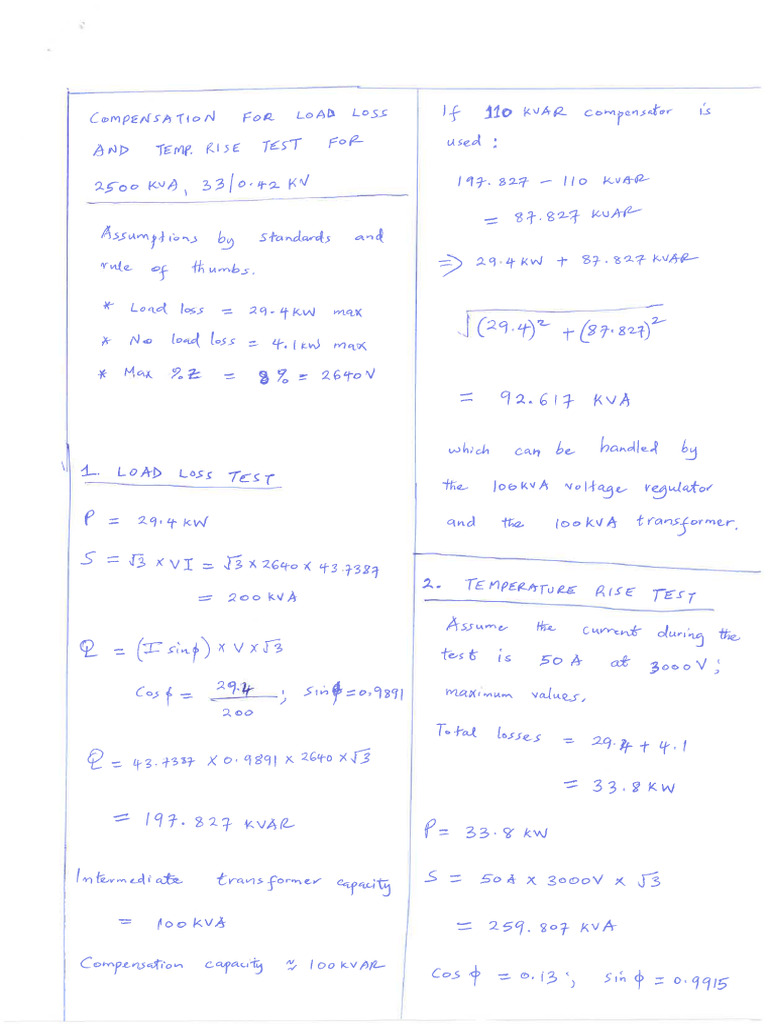 COMPENSATION FOR LOAD LOSS
AND TEMP. RISE TEST FOR
2500 KVA, 33/0.42 KV
Assumptions by standards and
rule of thumbs.
* Load loss = 29.4KW max
* No load loss = 4.1KW max
* Max %Z = 8% = 2640V
1. LOAD LOSS TEST
P = 29.4 KW
S = √3 × VI = √3 × 2640 × 43.7387
= 200 KVA
Q = (I sinϕ) × V × √3
Cosϕ = 29.4/200 ; Sinϕ = 0.9891
Q = 43.7387 × 0.9891 × 2640 × √3
= 197.827 KVAR
Intermediate transformer capacity
= 100KVA
Compensation capacity ≈ 100KVAR
If 110 KVAR compensator is
used :
197.827 - 110 KVAR
= 87.827 KVAR
⇒ 29.4KW + 87.827 KVAR
√(29.4)² + (87.827)²
= 92.617 KVA
which can be handled by
the 100KVA voltage regulator
and the 100KVA transformer.
2. TEMPERATURE RISE TEST
Assume the current during the
test is 50A at 3000V;
maximum values.
Total losses = 29.4 + 4.1
= 33.8 KW
P = 33.8 KW
S = 50A × 3000V × √3
= 259.807 KVA
Cos ϕ = 0.13 ; sin ϕ = 0.9915